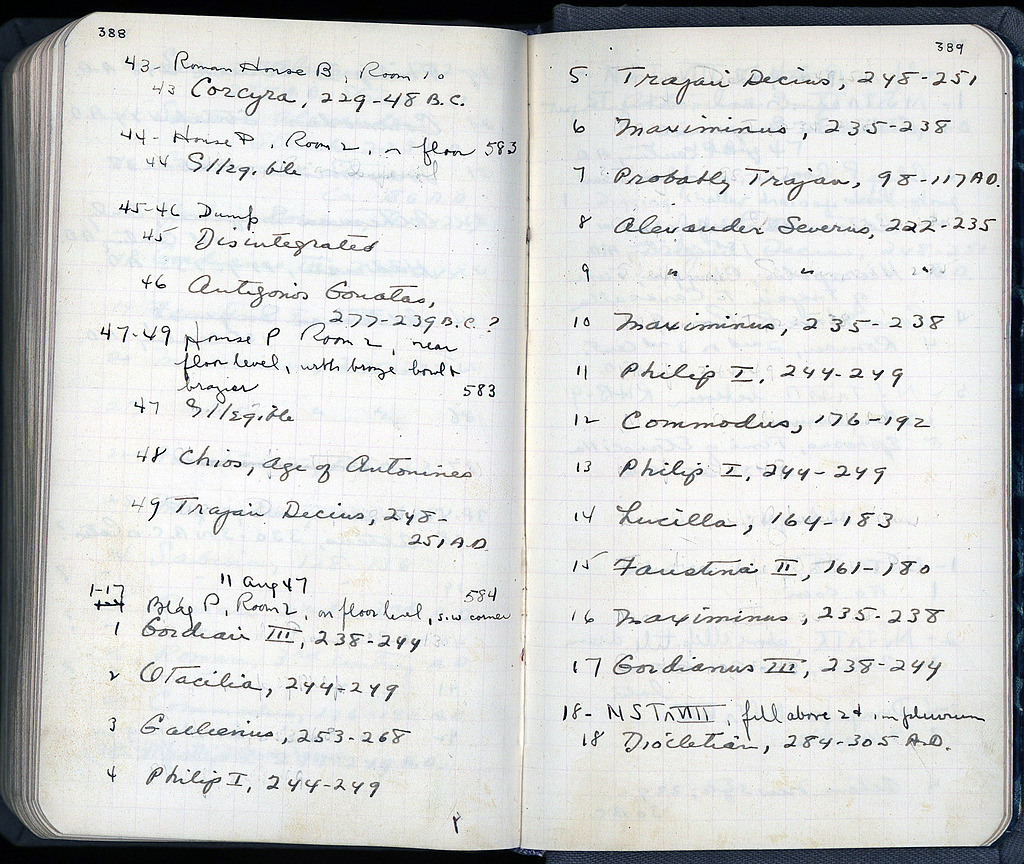 388
43- Roman House B, Room 10
43 Corcyra, 229-48 B.C.
44- House P, Room 2, on floor 583
44 Illegible
45-46 Dump
45 Disintegrated
46 Antigonos Gonatas,
277-239 B.C.?
47-49 House P Room 2, near
floor level, with bronze bowl &
brazier 583
47 Illegible
48 Chios, age of Antonines
49 Trajan Decius, 248-
251 A.D.
11 Aug 47
1-17 Bldg P, Room 2, on floor level, s.w corner 584
1 Gordian III, 238-244
2 Otacilia, 244-249
3 Gallienus, 253-268
4 Philip I, 244-249
389
5 Trajan Decius, 248-251
6 Maximinus, 235-238
7 Probably Trajan, 98-117 A.D.
8 Alexander Severus, 222-235
9 " "
10 Maximinus, 235-238
11 Philip I, 244-249
12 Commodus, 176-192
13 Philip I, 244-249
14 Lucilla, 164-183
15 Faustina II, 161-180
16 Maximinus, 235-238
17 Gordianus III, 238-244
18- NSTr VIII, fill above 2d impluvium
18 Diocletian, 284-305 A.D.